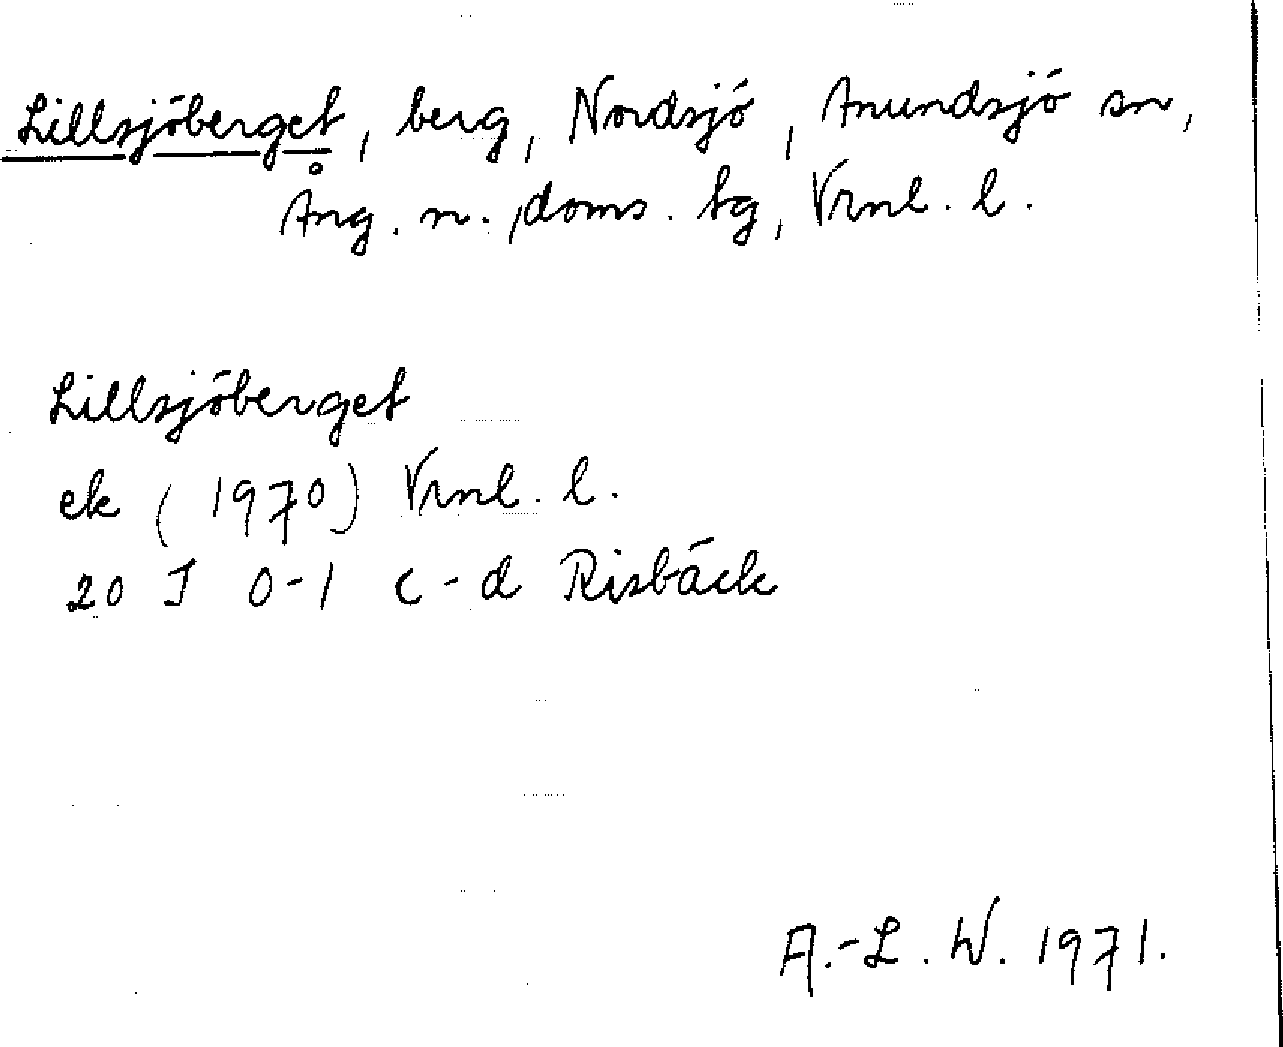 Lillsjöberget, berg, Nordsjö, Anundsjö sn,
Ång. n. doms. tg, Vrnl. l.
Lillsjöberget
ek (1970) Vrnl. l.
20 J 0-1 c-d Risbäck
A.-L. W. 1971.